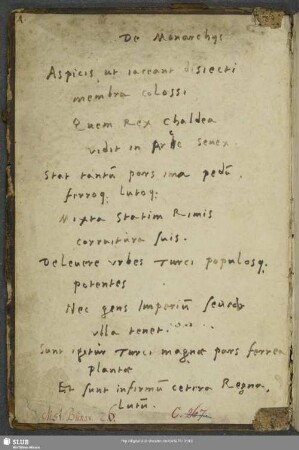 De Monarchys
Aspicis, ut iaceant disiecti
membra colossi
Quem Rex Chaldea
vidit in Arce senex.
Stat tantũ pars ima pedũ,
ferroq; Lutoq;
Mixta statim Rimis
corruitura suis.
Delevere urbes Turci populosq.
potentes
Nec gens Imperiũ
ulla tenet.
Sunt igitur Turci magnæ pars ferrea
plantæ
Et sunt infirmũ cetera Regna
Lutũ.
C. 267
SLUB